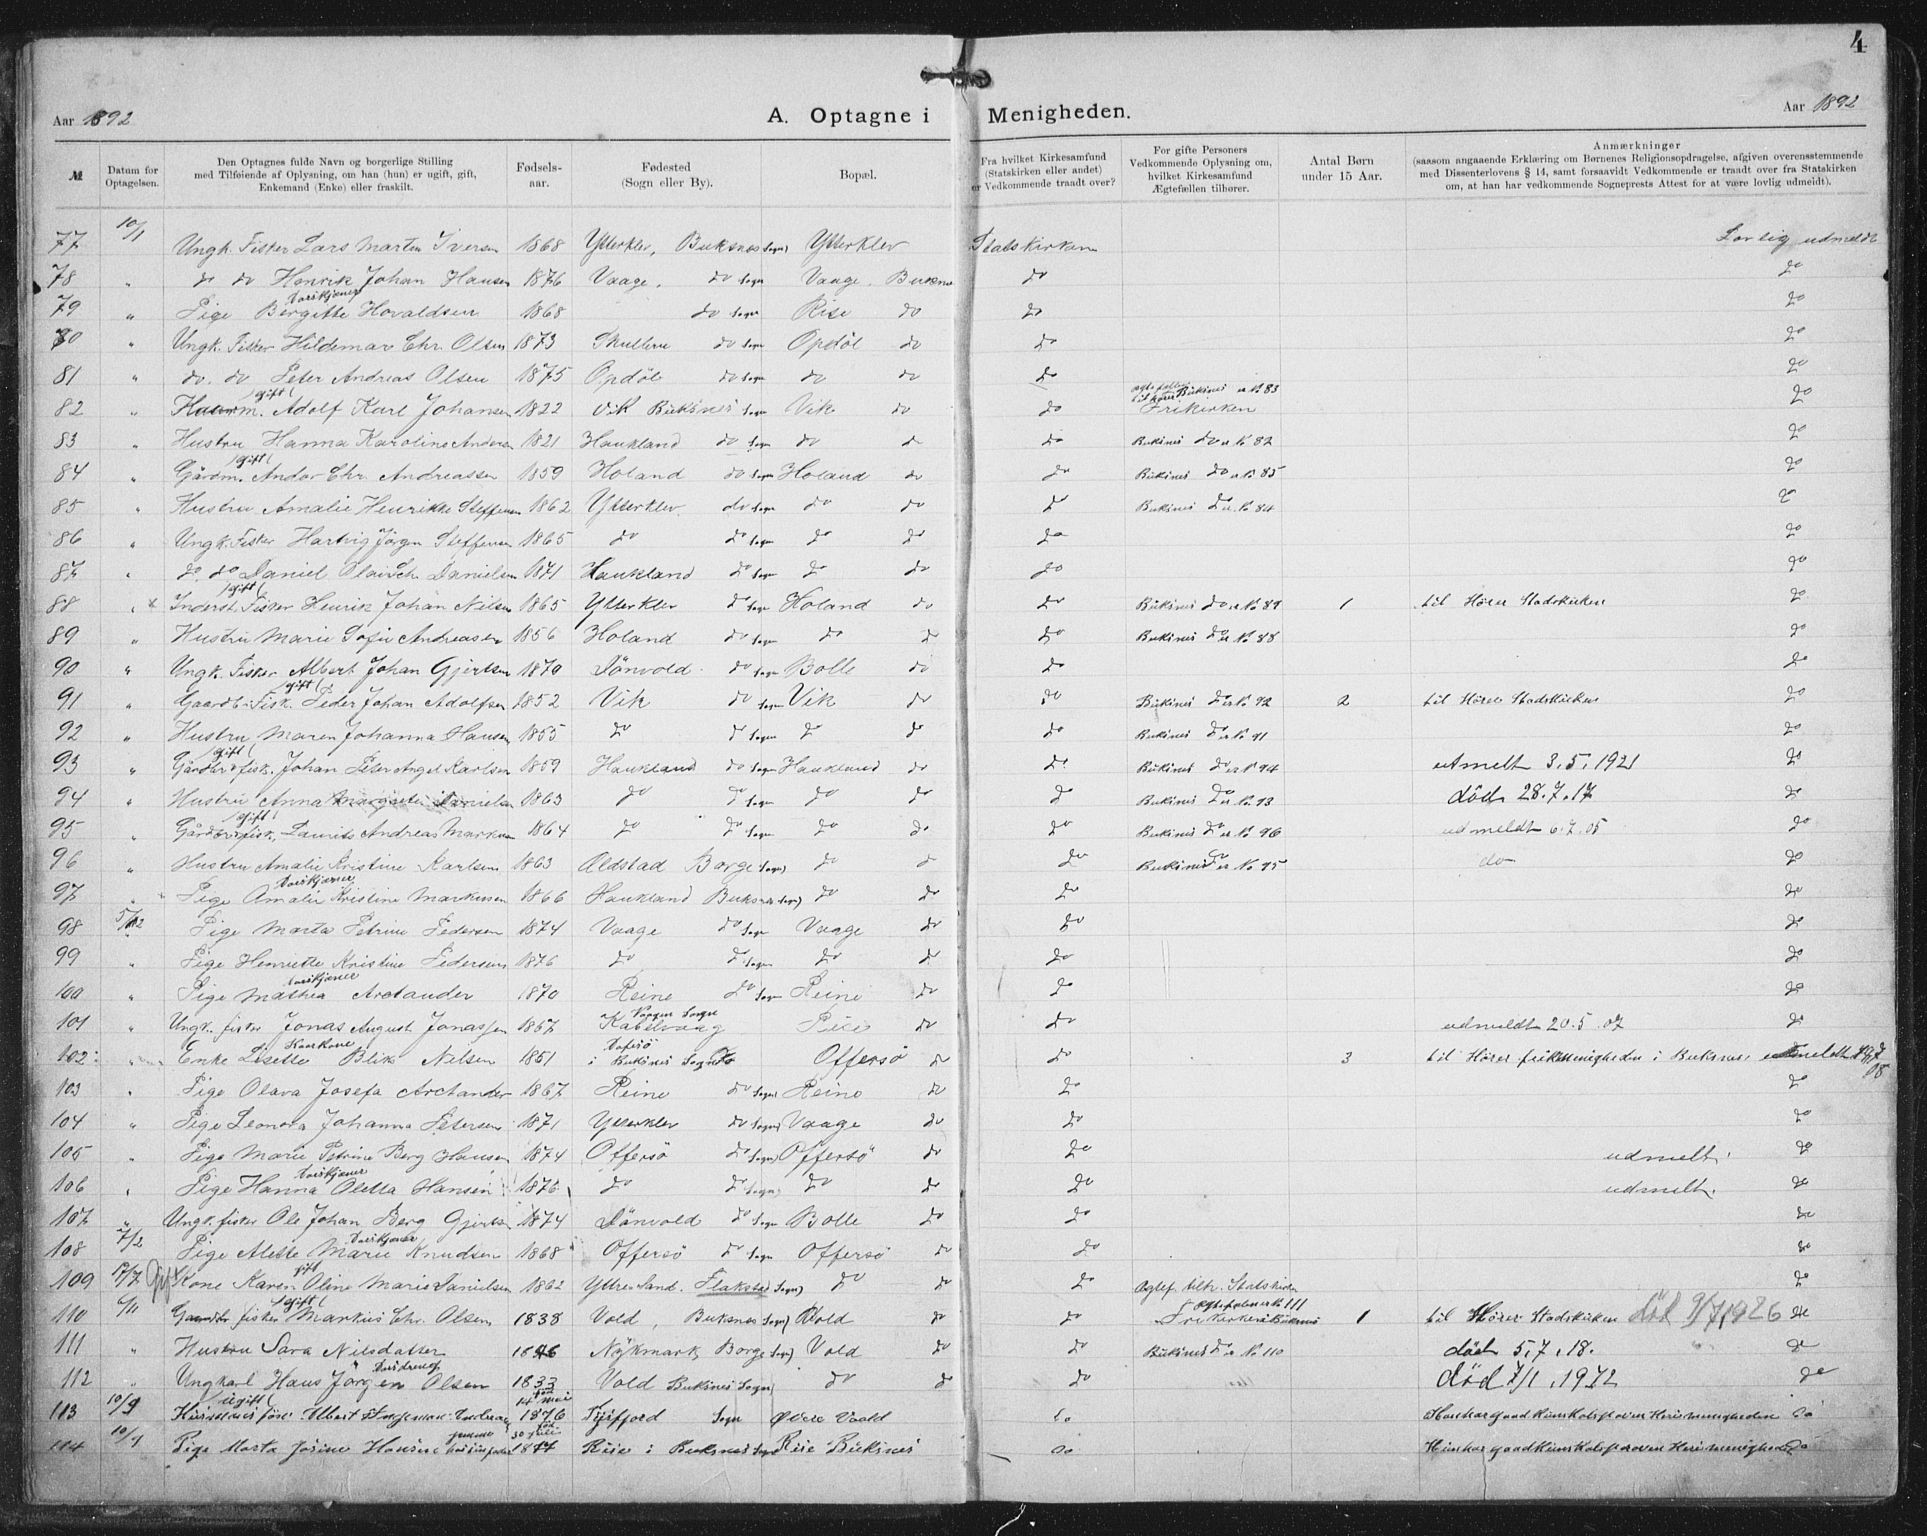 4
Aar 1892 A. Optagne i Menigheden. Aar 1892
№ Datum for Optagelsen. Den Optagnes fulde Navn og borgerlige Stilling med Tilføiende af Oplysning, om han (hun) er ugift, gift, Enkemand (Enke) eller fraskilt. Fødsels-aar. Fødested (Sogn eller By). Bopæl. Fra hvilket Kirkesamfund (Statskirken eller andet) er Vedkommende traadt over? For gifte Personers Vedkommende Oplysning om, hvilket Kirkesamfund Ægtefællen tilhører. Antal Børn under 15 Aar. Anmærkninger (saasom angaaende Erklæring om Børnenes Religionsopdragelse, afgiven overensstemmende med Dissenterlovens § 14, samt forsaavidt Vedkommende er traadt over fra Statskirken om, at han har vedkommende Sogneprests Attest for at være lovlig udmeldt).
77 10/1 Ungk. Fisker Lars Martin Iversen 1868 Ytterklev, Buksnes Sogn) Ytterklev Statskirken Lovlig udmeldt
78 " do do Henrik Johan Hansen 1876 Vaage, do Sogn Vaage, Buksnes do do
79 " Pige Bergitte Hovaldsen 1868 do Sogn Rise do do do
80 " Ungk. Fisker Hildemar Chr. Olsen 1873 do Sogn Opdøl do do do
81 " do. do Peter Andreas Olsen 1875 Opdøl do Sogn do do do do
82 " gift Adolf Karl Johansen 1822 Vik Buksnes Sogn Vik do do Buksnes er No 83 Frikirken do
83 " Hustru Hanna Karoline Andersen 1821 Haukland do Sogn do do do Buksnes do er No 82 do
84 " Gårdm. gift Andor Chr. Andreassen 1859 Holand do Sogn Holand do do Buksnes do er No 85 do
85 " Hustru Amalie Henrikke Steffensen 1862 Ytterklev. do Sogn do do do Buksnes do er No 84 do
86 " Ungk. Fisker Hartvig Jörgen Steffensen 1865 do do Sogn do do do do
87 " do. do Daniel Danielsen 1871 Haukland do Sogn do do do do
88 " x Inderst. Fisker gift Henrik Johan Nilsen 1865 Ytterklev do Sogn Holand do do Buksnes do er No 89 1 til Hører Stadskirken do
89 " Hustru Marie Sofie Andreasen 1856 Holand do Sogn do do do Buksnes do er No 88 do
90 " Ungk. Fisker Albert Johan Gjertsen 1870 Dönvold do Sogn Bolle do do do
91 " Gaardb. Fisk. gift Peder Johan Adolfsen 1852 Vik do Sogn Vik do do Buksnes do er No 92 2 til Hører Stadskirken do
92 " Hustru Maren Johanna Hansen 1855 do do Sogn do do do Buksnes do er No 91 do
93 " Gårdbr. fisk. gift Johan Peter Angel Karlsen 1859 Haukland do Sogn Haukland do do Buksnes do er No 94 utmelt 3.5.1921 do
94 " Hustru Anna Margrete Danielsen 1863 do do Sogn do do do Buksnes do er No. 93 död 28.7.17 do
95 " Gårdbr. fisk. gift Laurits Andreas Markusen 1864 do do Sogn do do do Buksnes do er No 96 udmeldt 6.7.05 do
96 " Hustru Amalie Kristine Karlsen 1863 Aldstad Borge Sogn) do do do Buksnes do er No 95 do do
97 " Pige Amalie Kristine Markusen 1866 Haukland Buksnes Sogn) do do do do
98 5/2 Pige Marta Petrine Pedersen 1874 Vaage do Sogn Vaage do do do
99 " Pige Henriette Kristine Pedersen 1876 do do Sogn do do do do
100 " Pige Mathea Arctander 1870 Reine do Sogn Reine do do do
101 " Ungk. fisker Jonas August Jonassen 1867 Kabelvaag Vaagen Sogn do do udmeldt 20.5.07 do
102 " Enke Lisette Blik Nilsen 1851 i Buksnes Sogn Offersö do do 3 til Hører frikemenigheden i Buksnes,
103 " Pige Olava Josefa Arctander 1867 Reine do Sogn) Reine do do do
104 " Pige Leonora Johanna Petersen 1871 Ytterklev do Sogn) Vaage do do do
105 " Pige Marie Petrine Berg Hansen 1874 Offersö do Sogn) Offersö do do udmelt. do
106 " Pige Hanna Oletta Hansen 1876 do do Sogn) do do do udmelt. do
107 " Ungk. fisker Ole Johan Berg Gjertsen 1874 Dönvold do Sogn Bolle do do do
108 7/2 Pige Alette Marie Knudsen 1868 Offersö do Sogn Offersö do do do
109 17/7 Gift Kone Karen Oline Marie Danielsen 1862 Yttre Sand. Flakstad Sogn) do do do Ogtef. tilh. Statskirken do
110 6/11 fisker gift Markus Chr. Olsen 1838 Vold, Buksnes Sogn) Vold do do er No 111 Frikirken i Buksnes 1 til Hører Stadskirken död 9/7 1926 do
111 " Hustru Sara Nilsdatter 1846 Borge Sogn) Vold do do Buksnes do er No 110 död 5.7.18. do
112 " Ungkarl Hans Jørgen Olsen 1833 Vold Buksnes Sogn) do do do död 7/1. 1912 do
113 10/9 ugift 1876 Tysfjord Sogn do do
114 10/9 Pige Marta Josine Hansen Rise i Buksnes Sogn Rise Buksnes do do